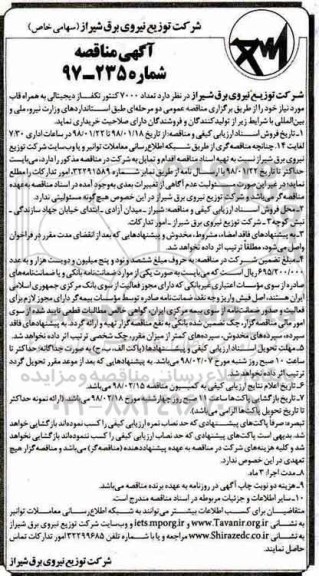 شرکت توزیع نیروی برق شیراز (سهامی خاص)
آگهی مناقصه
شماره ۲۳۵-۹۷
شرکت توزیع نیروی برق شیراز در نظر دارد تعداد ۷۰۰۰ کنتور تکفاز دیجیتالی به همراه قاب
مورد نیاز خود را از طریق برگزاری مناقصه عمومی دو مرحله‌ای طبق استانداردهای وزارت نیرو، ملی و
بین‌المللی با شرایط زیر از تولیدکنندگان و فروشندگان دارای صلاحیت خریداری نماید.
۱-تاریخ فروش اسناد ارزیابی کیفی و مناقصه: از تاریخ ۹۸/۰۱/۱۸ تا ۹۸/۰۱/۲۲ در ساعات اداری ۷/۳۰
لغایت ۱۴. چنانچه مناقصه‌گری از طریق شبکه اطلاع‌رسانی معاملات توانیر و یا وب‌سایت شرکت توزیع
نیروی برق شیراز نسبت به تهیه اسناد مناقصه اقدام و تمایل به شرکت در مناقصه مذکور را دارد، می‌بایست
حداکثر تا تاریخ ۹۸/۰۱/۲۲ با ارسال نامه از طریق نمابر شماره ۳۲۲۹۱۵۸۹ امور تدارکات را مطلع
نماید؛ در غیر این صورت مسئولیت عدم آگاهی از تغییرات بعدی به‌وجود آمده در اسناد مناقصه به‌عهده
مناقصه‌گر می‌باشد و شرکت توزیع نیروی برق شیراز در این خصوص هیچ‌گونه مسئولیتی ندارد.
۲-محل فروش اسناد ارزیابی کیفی و مناقصه: شیراز-میدان آزادی-ابتدای خیابان جهاد سازندگی-
نبش کوچه ۲-شرکت توزیع نیروی برق شیراز-امور تدارکات
۳-به پیشنهادهای فاقد امضاء، مشروط، مخدوش و پیشنهادهایی که بعد از انقضای مدت مقرر در فراخوان
واصل می‌شود، مطلقاً ترتیب اثر داده نخواهد شد.
۴-مبلغ تضمین شرکت در مناقصه: به حروف مبلغ ششصد و نود و پنج میلیون و دویست هزار و به عدد
۶۹۵/۲۰۰/۰۰۰ ریال است که می‌بایست به صورت یکی از موارد ضمانت‌نامه بانکی و یا ضمانت‌نامه‌های
صادره از سوی مؤسسات اعتباری غیربانکی که دارای مجوز فعالیت از سوی بانک مرکزی جمهوری اسلامی
ایران هستند، اصل فیش واریز وجه نقد، ضمانت‌نامه صادره توسط مؤسسات بیمه‌گر دارای مجوز لازم برای
فعالیت و صدور ضمانت‌نامه از سوی بیمه مرکزی ایران، گواهی خالص مطالبات قطعی تایید شده از سوی
امور مالی مناقصه‌گزار، چک تضمین شده بانکی به نفع مناقصه‌گزار تهیه و ارائه گردد. به پیشنهادهای فاقد
سپرده، سپرده‌های مخدوش، سپرده‌های کمتر از میزان مقرر، چک شخصی ترتیب اثر داده نخواهد شد.
۵-مهلت تحویل اسناد ارزیابی کیفی و پیشنهادها (پاکت الف-ب-ج) به صورت جداگانه: حداکثر تا
ساعت ۱۰ صبح روز شنبه مورخ ۹۸/۰۲/۰۷ می‌باشد. به پیشنهادهایی که بعد از موعد مقرر تحویل گردد
ترتیب اثر داده نخواهد شد.
۶-تاریخ اعلام نتایج ارزیابی کیفی به کمیسیون مناقصه ۹۸/۰۲/۱۵ می‌باشد.
۷-تاریخ بازگشایی پاکت‌ها ساعت ۱۰ صبح روز چهارشنبه مورخ ۹۸/۰۲/۱۸ می‌باشد. (ارائه نمونه حداکثر
تا تاریخ تحویل پاکت‌ها الزامی می‌باشد).
تبصره: صرفاً پاکت‌های پیشنهادی که حد نصاب نمره ارزیابی کیفی را کسب نموده‌اند بازگشایی خواهد
شد. بدیهی است پاکت‌های پیشنهادی که حد نصاب ارزیابی کیفی را کسب ننموده‌اند بازگشایی نخواهد
شد و کلیه هزینه‌های شرکت در مناقصه به عهده پیشنهاددهنده (مناقصه‌گر) می‌باشد و مناقصه‌گزار هیچ
تعهدی در این خصوص ندارد.
۸-مدت اجرا: ۳ ماه.
۹-هزینه دو نوبت چاپ آگهی در روزنامه به عهده برنده مناقصه می‌باشد.
۱۰-سایر اطلاعات و جزئیات مربوطه در اسناد مناقصه مندرج است.
متقاضیان برای کسب اطلاعات بیشتر می‌توانند به شبکه اطلاع‌رسانی معاملات توانیر
به نشانی www.Tavanir.org.ir و iets.mporg.ir و وب‌سایت شرکت توزیع نیروی برق شیراز
به نشانی www.Shirazedc.co.ir مراجعه و یا با شماره تلفن ۳۲۲۹۹۶۸۵ امور تدارکات تماس
حاصل نمایند.
شرکت توزیع نیروی برق شیراز